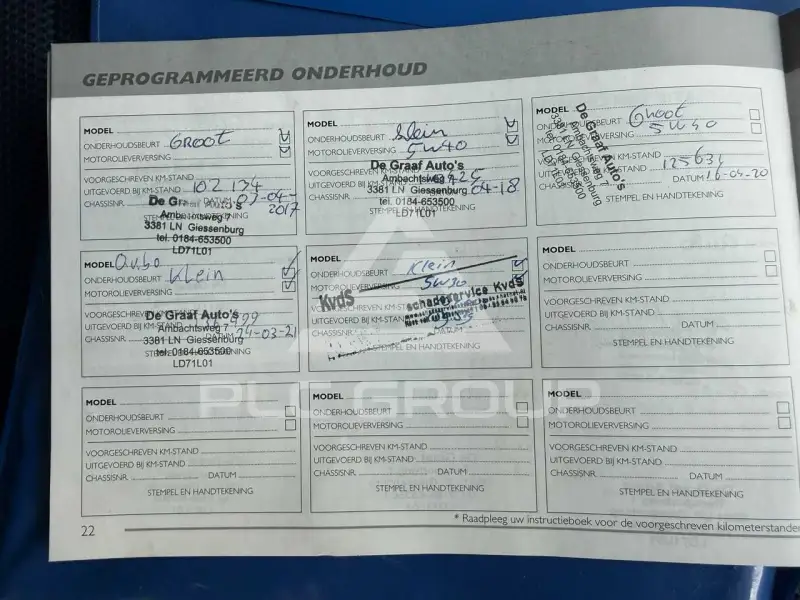 GEPROGRAMMEERD ONDERHOUD
MODEL
ONDERHOUDSBEURT GROOT
MOTOROLIEVERVERSING
VOORGESCHREVEN KM-STAND
UITGEVOERD BIJ KM-STAND 102 134
CHASSISNR. DATUM 07-04-2017
De Graaf Auto's
STEMPEL EN HANDTEKENING
Ambachtsweg 7
3381 LN Giessenburg
tel. 0184-653500
LD71L01
MODEL
ONDERHOUDSBEURT klein
MOTOROLIEVERVERSING 5W40
De Graaf Auto's
VOORGESCHREVEN KM-STAND
Ambachtsweg 7
UITGEVOERD BIJ KM-STAND
3381 LN Giessenburg 04-18
CHASSISNR.
tel. 0184-653500
STEMPEL EN HANDTEKENING
LD71L01
MODEL
ONDERHOUDSBEURT Groot
MOTOROLIEVERVERSING 5W40
VOORGESCHREVEN KM-STAND
UITGEVOERD BIJ KM-STAND 125631
CHASSISNR. DATUM 16-04-20
STEMPEL EN HANDTEKENING
De Graaf Auto's
Ambachtsweg 7
3381 LN Giessenburg
tel. 0184-653500
LD71L01
MODEL
ONDERHOUDSBEURT Klein
MOTOROLIEVERVERSING
VOORGESCHREVEN KM-STAND
De Graaf Auto's
UITGEVOERD BIJ KM-STAND
Ambachtsweg 7
CHASSISNR. DATUM 24-03-21
3381 LN Giessenburg
STEMPEL EN HANDTEKENING
tel. 0184-653500
LD71L01
MODEL
ONDERHOUDSBEURT Klein
MOTOROLIEVERVERSING 5W30
KvdS schadeservice KvdS
VOORGESCHREVEN KM-STAND
UITGEVOERD BIJ KM-STAND
CHASSISNR. DATUM
STEMPEL EN HANDTEKENING
MODEL
ONDERHOUDSBEURT
MOTOROLIEVERVERSING
VOORGESCHREVEN KM-STAND
UITGEVOERD BIJ KM-STAND
CHASSISNR. DATUM
STEMPEL EN HANDTEKENING
PLC GROUP
MODEL
ONDERHOUDSBEURT
MOTOROLIEVERVERSING
VOORGESCHREVEN KM-STAND
UITGEVOERD BIJ KM-STAND
CHASSISNR. DATUM
STEMPEL EN HANDTEKENING
MODEL
ONDERHOUDSBEURT
MOTOROLIEVERVERSING
VOORGESCHREVEN KM-STAND
UITGEVOERD BIJ KM-STAND
CHASSISNR. DATUM
STEMPEL EN HANDTEKENING
MODEL
ONDERHOUDSBEURT
MOTOROLIEVERVERSING
VOORGESCHREVEN KM-STAND
UITGEVOERD BIJ KM-STAND
CHASSISNR. DATUM
STEMPEL EN HANDTEKENING
22
* Raadpleeg uw instructieboek voor de voorgeschreven kilometerstanden